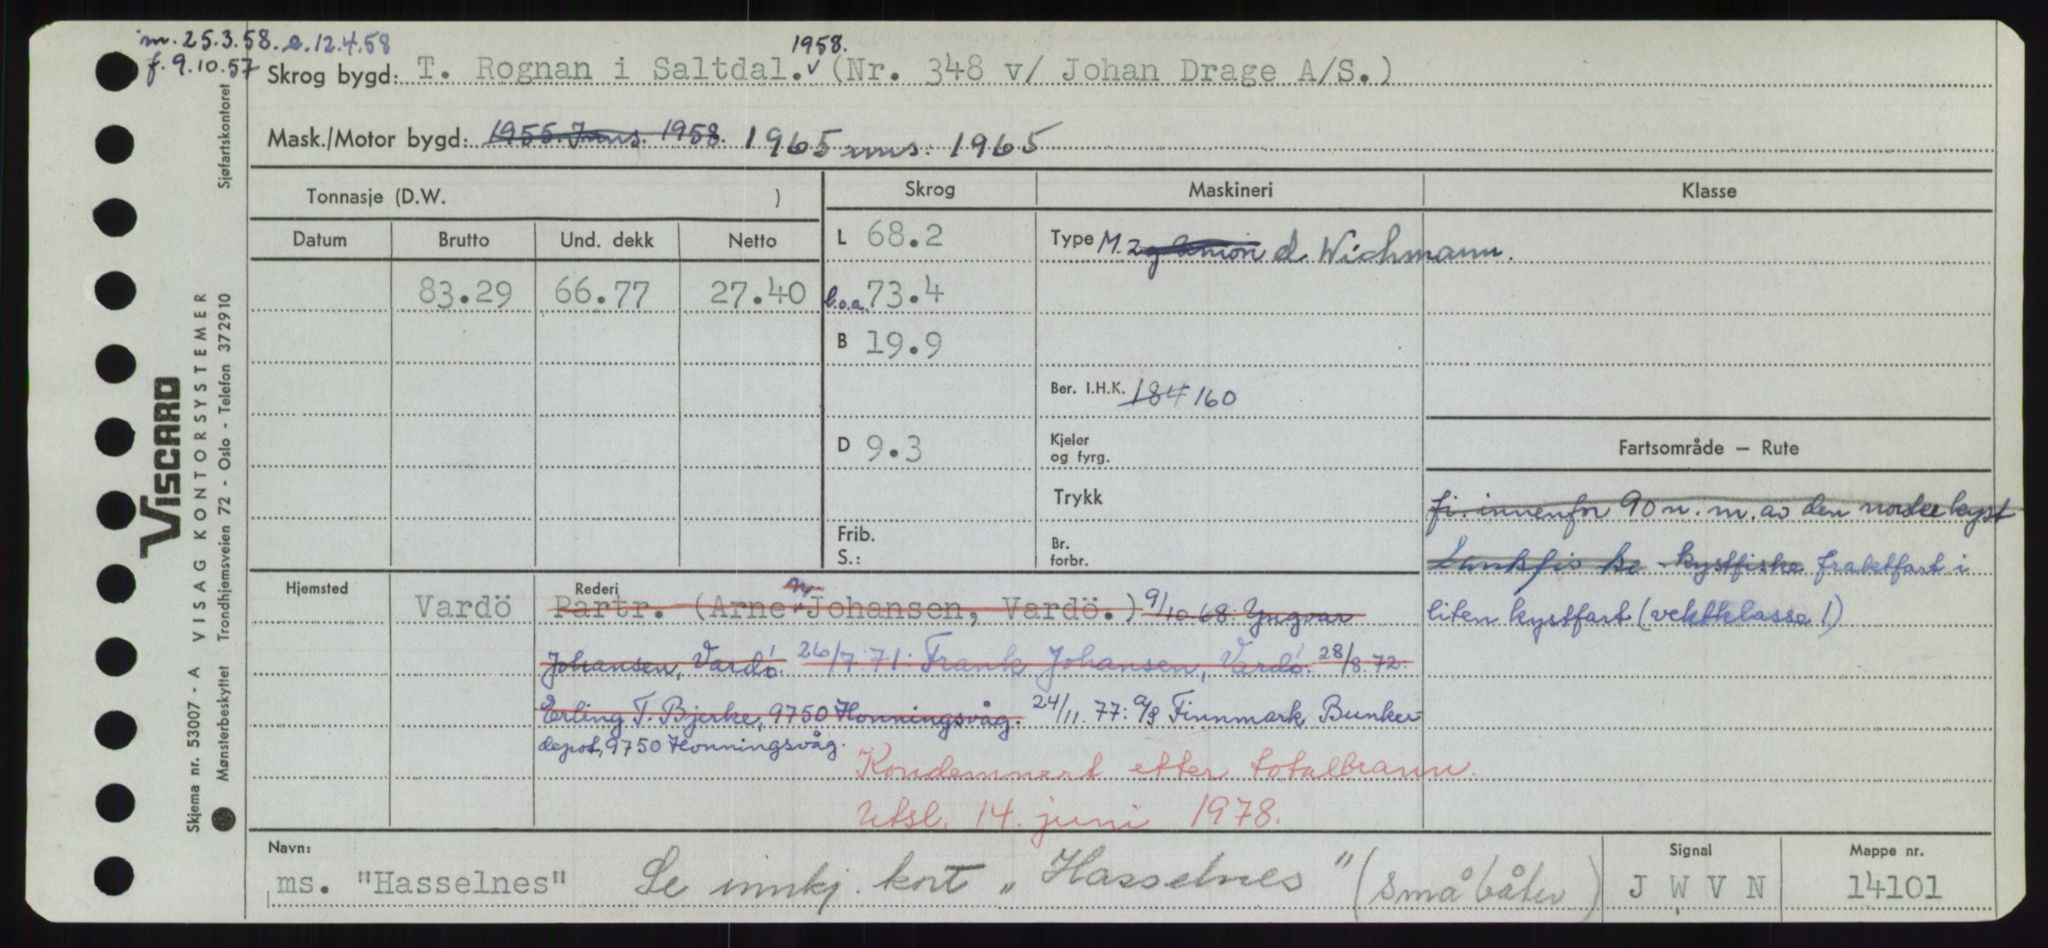 m. 25.3.58. e. 12.4.58
f. 9.10.57
1958.
Skrog bygd: T. Rognan i Saltdal.v (Nr. 348 v/ Johan Drage A/S.)
Mask./Motor bygd: 1955. Inns. 1958. 1965 inns. 1965
Tonnasje (D.W. )
Skrog
Maskineri
Klasse
Datum
Brutto
Und. dekk
Netto
L 68.2
Type M. 2 g Union d Wichmann.
83.29 66.77 27.40
l.o.a. 73.4
B 19.9
Ber. I.H.K. 184 160
D 9.3
Kjeler
og fyrg.
Fartsområde — Rute
Trykk
fi. innenfor 90 n. m. av den norske kyst
Frib.
S.:
Br.
forbr.
bankfiske - kystfiske fraktfart i
liten kystfart (vektklasse 1)
Hjemsted
Vardö
Rederi
Partr. (Arne M. Johansen, Vardö.) 9/10 68: Yngvar
Johansen, Vardø. 26/7.71: Frank Johansen, Vardø. 28/8.72:
Erling T. Bjerke, 9750 Honningsvåg. 24/11.77: A/S Finnmark Bunker-
depot, 9750 Honningsvåg.
Kondemnert etter totalbrann.
Utsl. 14. juni 1978.
Navn:
ms. "Hasselnes"
Se innkj. kort „Hasselnes" (småbåter)
Signal
J W V N
Mappe nr.
14101
Skjema nr. 53007 - A VISAG KONTORSYSTEMER
Mønsterbeskyttet Trondhjemsveien 72 - Oslo - Telefon 372910
Sjøfartskontoret
VISCARD